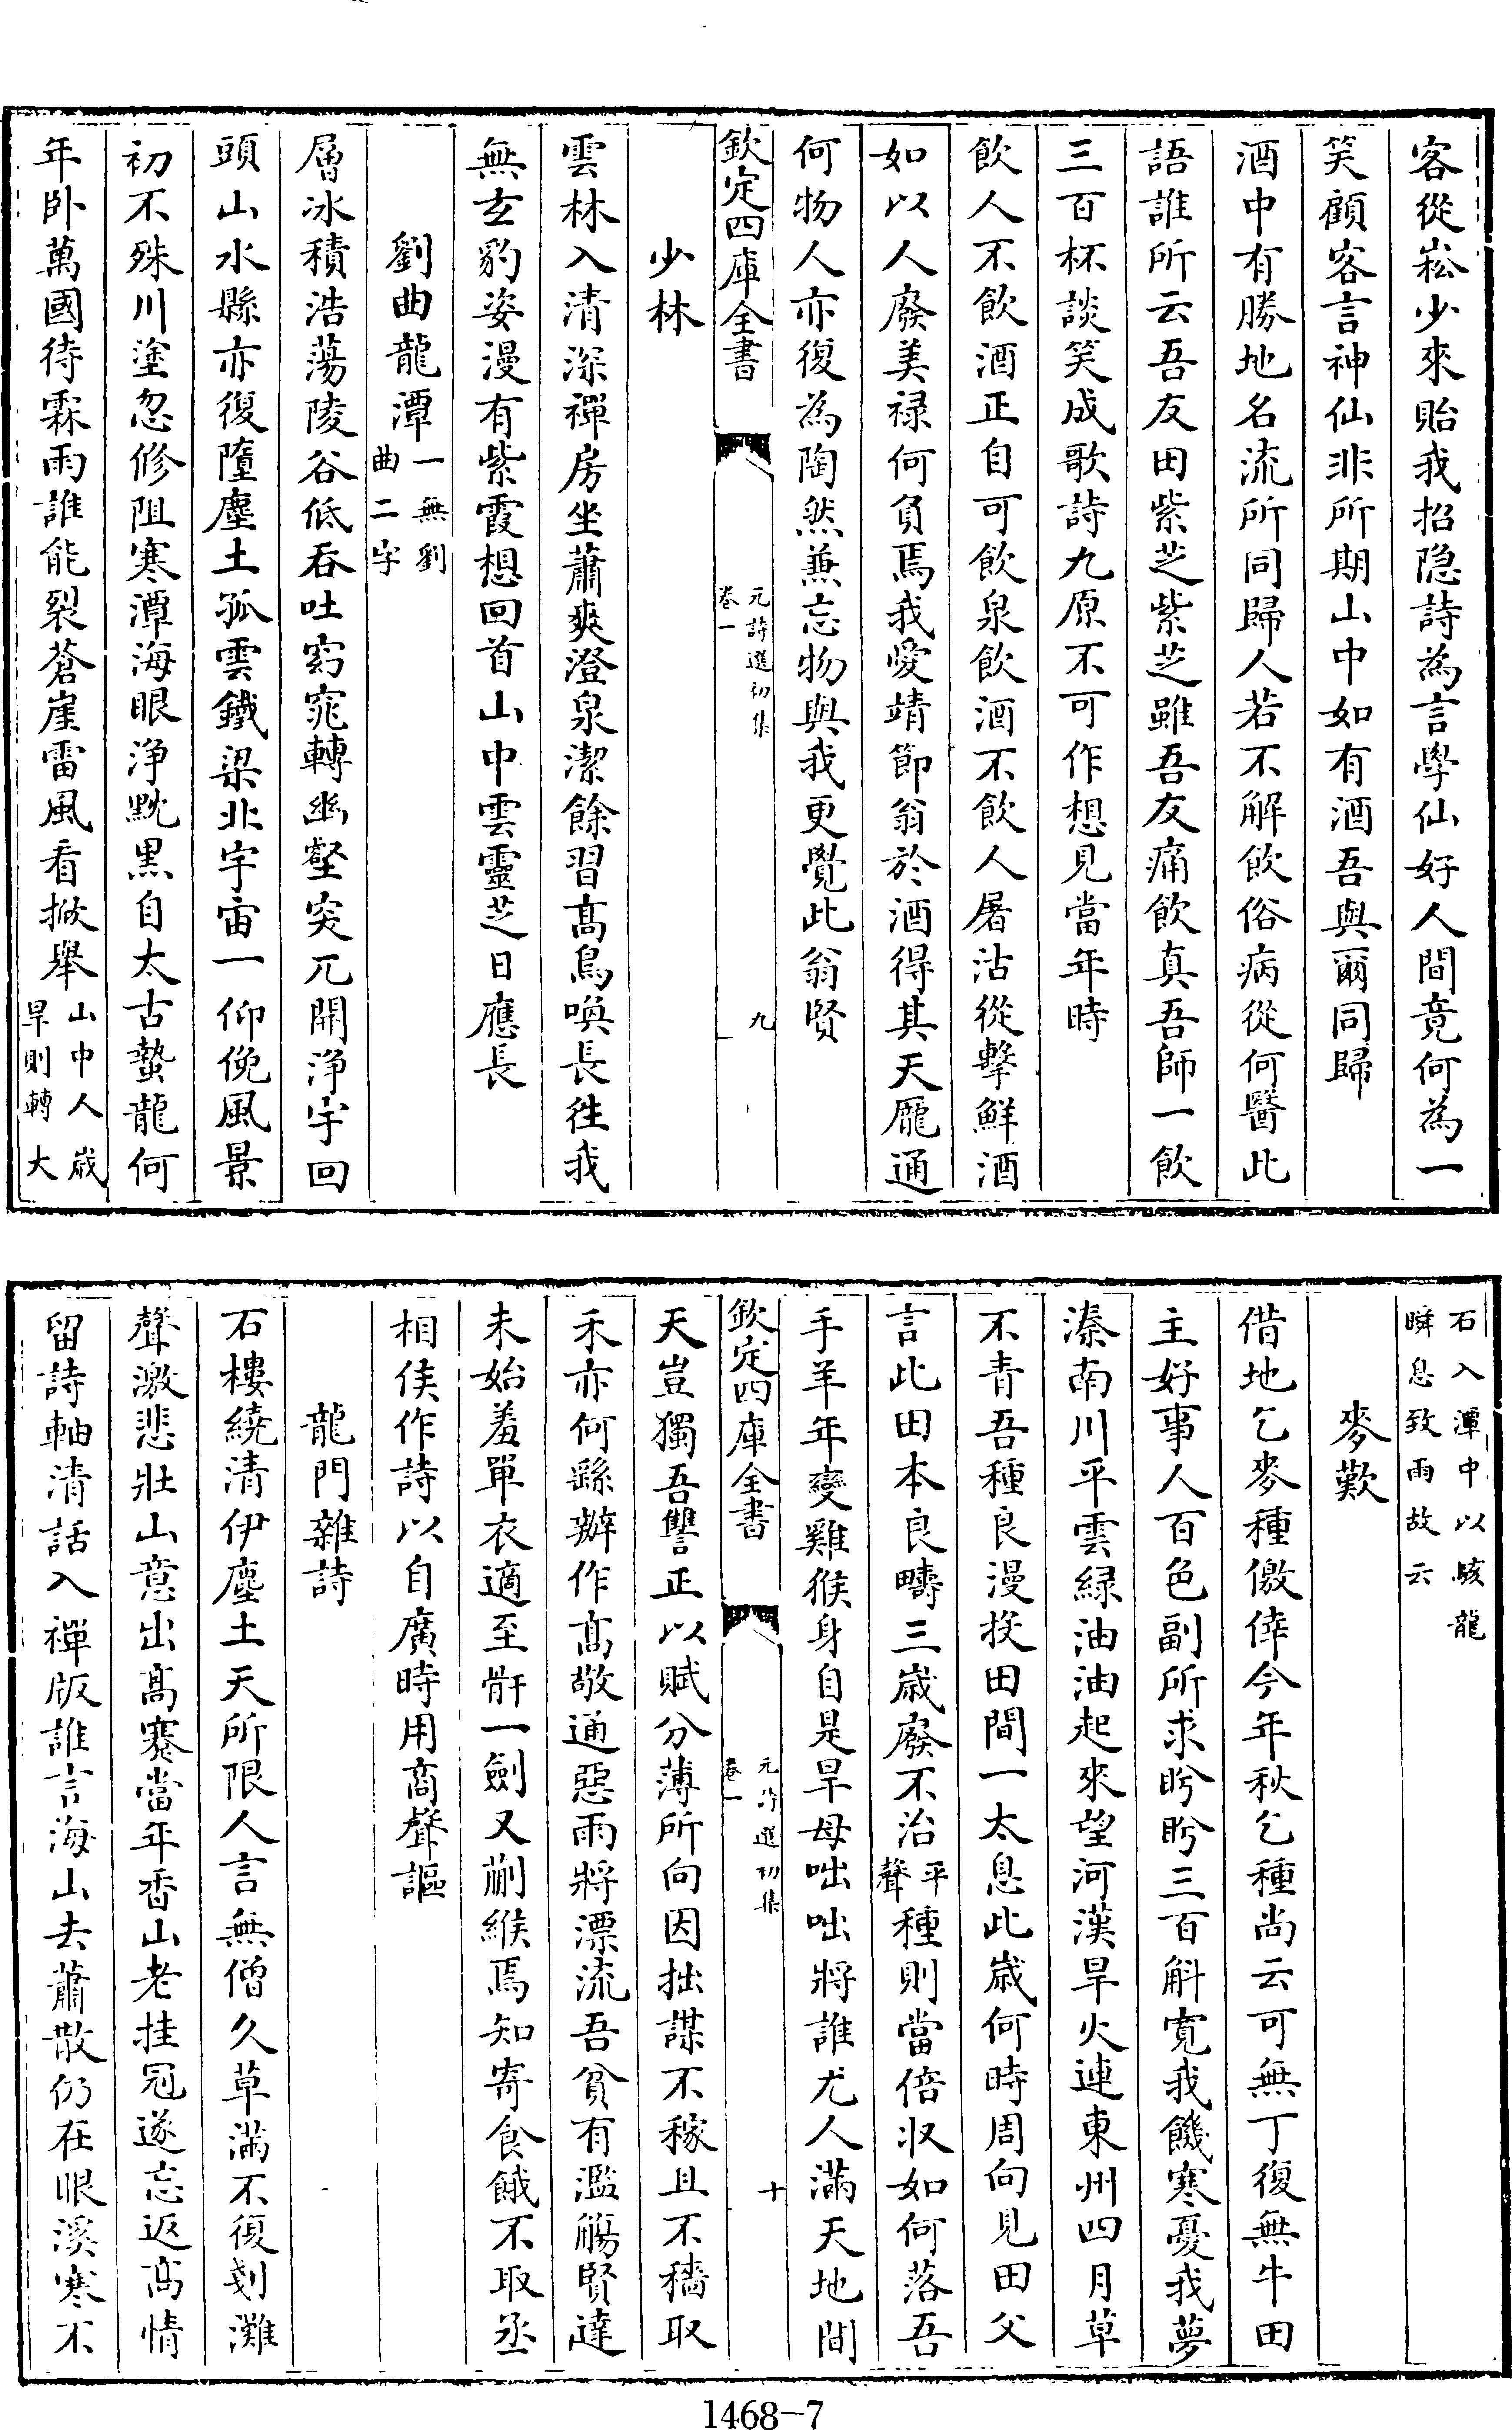 客從崧少來貽我招隱詩為言學仙好人間竟何為一
笑顧客言神仙非所期山中如有酒吾與爾同歸
酒中有勝地名流所同歸人若不解飲俗病從何醫此
語誰所云吾友田紫芝紫芝雖吾友痛飲真吾師一飲
三百杯談笑成歌詩九原不可作想見當年時
飲人不飲酒正自可飲泉飲酒不飲人屠沽從擊鮮酒
如以人廢美祿何負焉我愛靖節翁於酒得其天龎通
何物人亦復為陶然兼忘物與我更覺此翁賢
欽定四庫全書
元詩選初集
卷一
九
少林
雲林入清深禪房坐蕭爽澄泉潔餘習高鳥喚長往我
無玄豹姿漫有紫霞想回首山中雲靈芝日應長
劉曲龍潭一無劉曲二字
層冰積浩蕩陵谷低吞吐窈窕轉幽壑突兀開淨宇回
頭山水縣亦復墮塵土孤雲鐵梁北宇宙一仰俛風景
初不殊川塗忽修阻寒潭海眼淨黕黑自太古蟄龍何
年卧萬國待霖雨誰能裂蒼崖雷風看掀舉山中人歲旱則轉大
石入潭中以駭龍
瞬息致雨故云
麥歎
借地乞麥種徼倖今年秋乞種尚云可無丁復無牛田
主好事人百色副所求盻盻三百斛寬我饑寒憂我夢
溱南川平雲綠油油起來望河漢旱火連東州四月草
不青吾種良漫投田間一太息此歲何時周向見田父
言此田本良疇三歲廢不治平聲種則當倍收如何落吾
手羊年變雞猴身自是旱母咄咄將誰尤人滿天地間
欽定四庫全書
元詩選初集
卷一
十
天豈獨吾讐正以賦分薄所向因拙謀不稼且不穡取
禾亦何繇辦作高敞通惡雨將漂流吾貧有濫觴賢達
未始羞單衣適至骭一劍又蒯緱焉知寄食餓不取丞
相侯作詩以自廣時用商聲謳
龍門雜詩
石樓繞清伊塵土天所限人言無僧久草滿不復剗灘
聲激悲壯山意出高蹇當年香山老挂冠遂忘返高情
留詩軸清話入禪版誰言海山去蕭散仍在眼溪寒不
1468-7